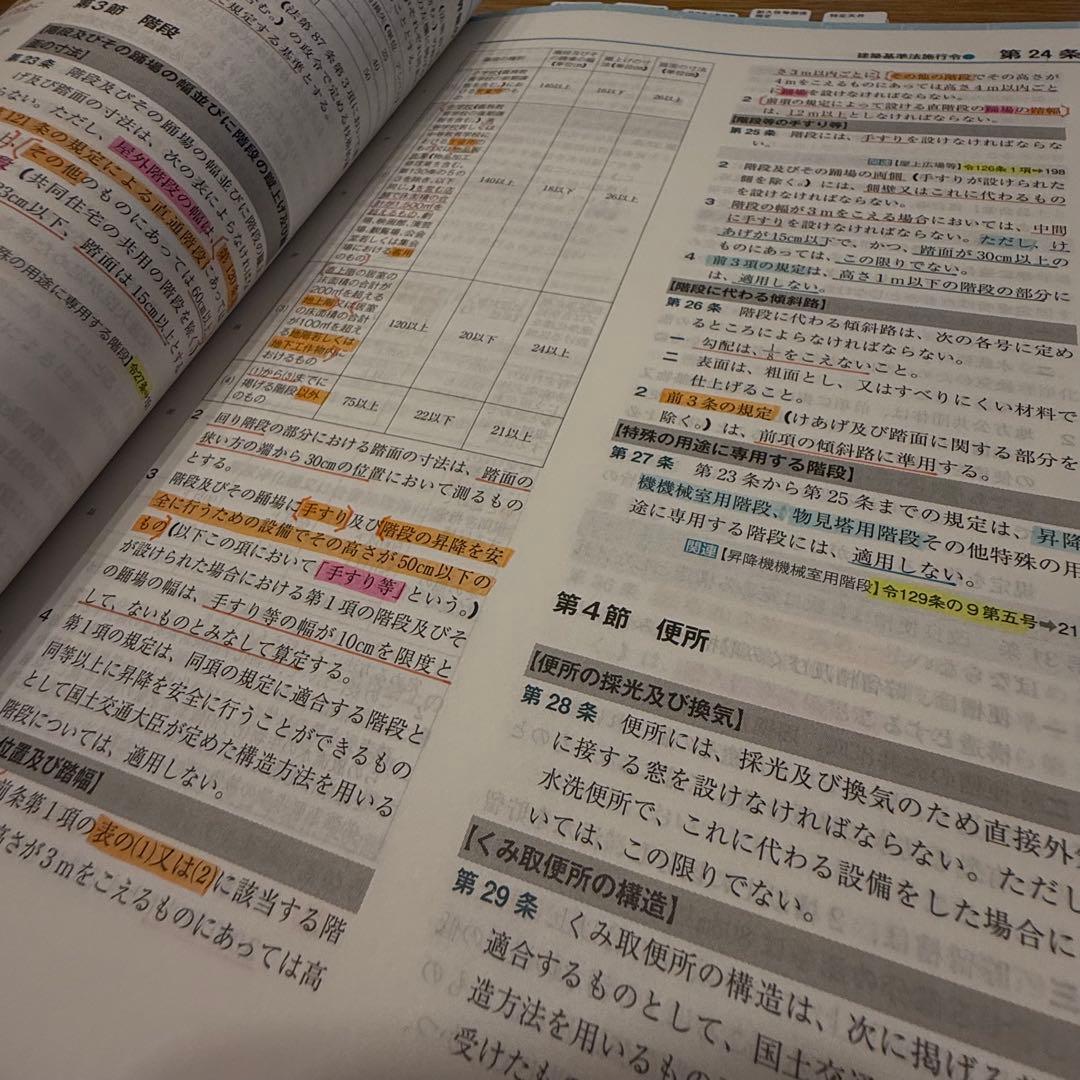 第3節 階段
【階段及びその踊場の幅並びに階段の蹴上げ及び
面の寸法】
第23条 階段及びその踊場の幅並びに階段の
げ及び踏面の寸法は、次の表によらなければ
らない。ただし、屋外階段の幅は、第120条
121条の規定による直通階段に
その他のものにあっては60cm以上
(共同住宅の共用の階段を除く
23cm以下、踏面は15cm以上とす
殊の用途に専用する階段】令27条
(法第87条第3項において
規定する基準とする。
140以上
16以下
26以上
140以上
18以下
26以上
(3)
直上階の居室の
床面積の合計が
200㎡を超える
地上階又は居室
の床面積の合計
が100㎡を超え
る地階若しくは
地下工作物内に
おけるもの
120以上
20以下
24以上
(4)
(1)から(3)までに
掲げる階段以外
のもの
75以上
22以下
21以上
2 回り階段の部分における踏面の寸法は、踏面の
狭い方の端から30cmの位置において測るもの
とする。
3 階段及びその踊場に手すり及び階段の昇降を安
全に行うための設備でその高さが50cm以下の
もの(以下この項において「手すり等」という。)
が設けられた場合における第1項の階段及びそ
の踊場の幅は、手すり等の幅が10cmを限度と
して、ないものとみなして算定する。
4 第1項の規定は、同項の規定に適合する階段と
同等以上に昇降を安全に行うことができるもの
として国土交通大臣が定めた構造方法を用いる
階段については、適用しない。
位置及び踏幅】
前条第1項の表の(1)又は(2)に該当する階
高さが3mをこえるものにあっては高
特定天井
建築基準法施行令 第24条
さ3m以内ごとに、その他の階段でその高さが
4mをこえるものにあっては高さ4m以内ごと
に踊場を設けなければならない。
2 前項の規定によって設ける直階段の踊場の踏幅
は、1.2m以上としなければならない。
【階段等の手すり等】
第25条 階段には、手すりを設けなければならな
い。
関連【屋上広場等】令126条1項➡198
2 階段及びその踊場の両側(手すりが設けられた
側を除く。)には、側壁又はこれに代わるもの
を設けなければならない。
3 階段の幅が3mをこえる場合においては、中間
に手すりを設けなければならない。ただし、け
あげが15cm以下で、かつ、踏面が30cm以上の
ものにあっては、この限りでない。
4 前3項の規定は、高さ1m以下の階段の部分に
は、適用しない。
【階段に代わる傾斜路】
第26条 階段に代わる傾斜路は、次の各号に定め
るところによらなければならない。
一 勾配は、1/8をこえないこと。
二 表面は、粗面とし、又はすべりにくい材料で
仕上げること。
2 前3条の規定(けあげ及び踏面に関する部分を
除く。)は、前項の傾斜路に準用する。
【特殊の用途に専用する階段】
第27条 第23条から第25条までの規定は、昇降
機機械室用階段、物見塔用階段その他特殊の用
途に専用する階段には、適用しない。
関連【昇降機機械室用階段】令129条の9第五号➡21
第4節 便所
【便所の採光及び換気】
第28条 便所には、採光及び換気のため直接外
に接する窓を設けなければならない。ただし
水洗便所で、これに代わる設備をした場合に
いては、この限りでない。
【くみ取便所の構造】
第29条 くみ取便所の構造は、次に掲げる
適合するものとして、国土交
造方法を用いるもの
受けたも